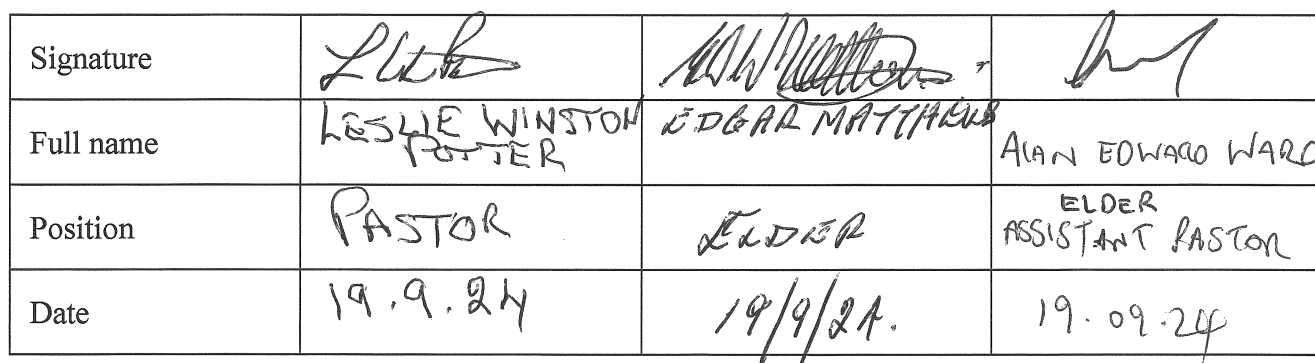 Signature
Full name LESLIE WINSTON POTTER EDGAR MATTHEWS ALAN EDWARD WARD
Position PASTOR ELDER ELDER ASSISTANT PASTOR
Date 19.9.24 19/9/24. 19.09.24